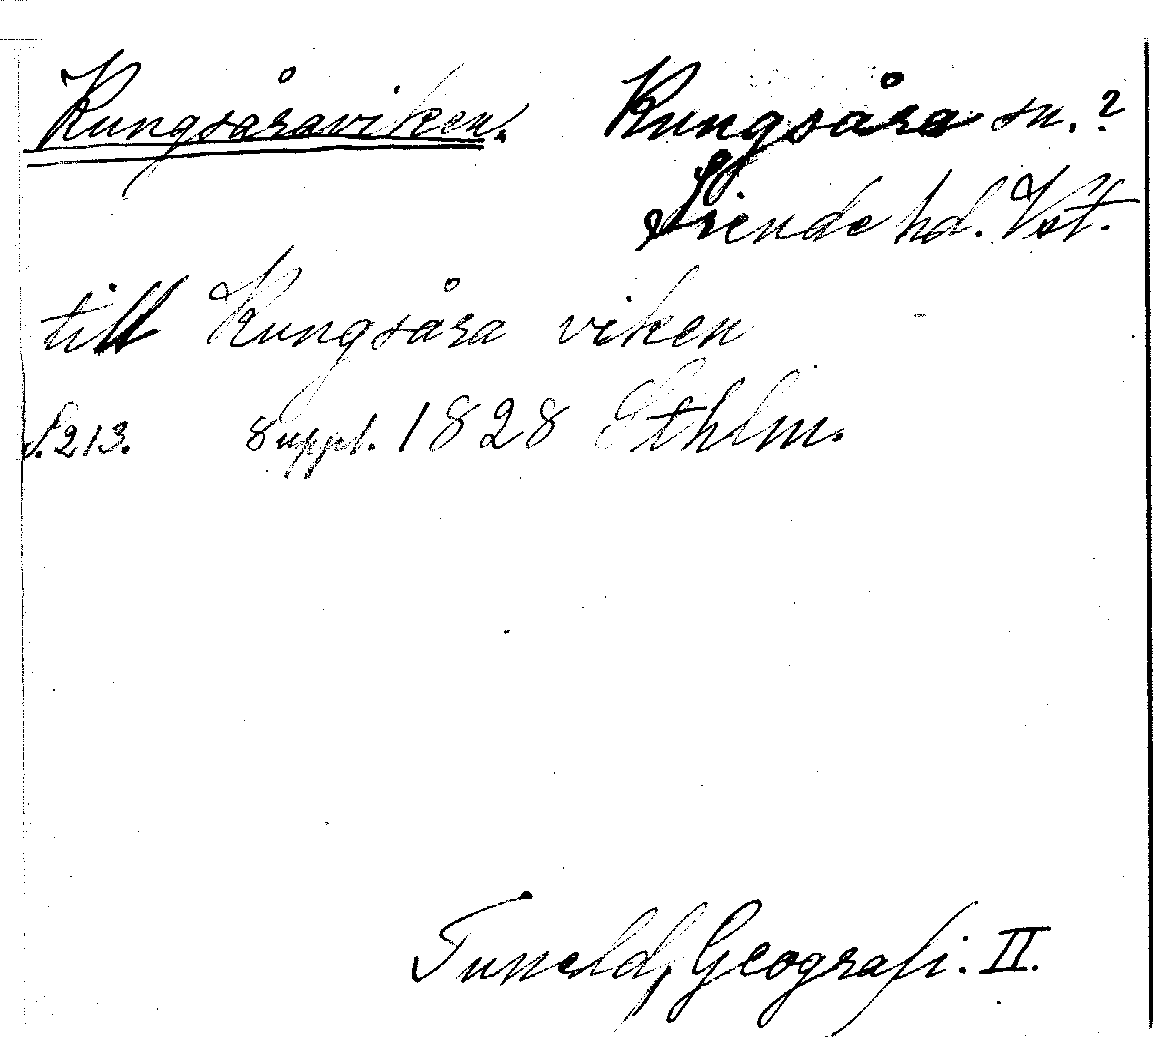 Kungsåraviken. Kungsåra sn.?
Siende hd. Vst.
till Kungsåra viken
S. 213. Suppl. 1828 Sthlm.
Tuneld, Geografi. II.